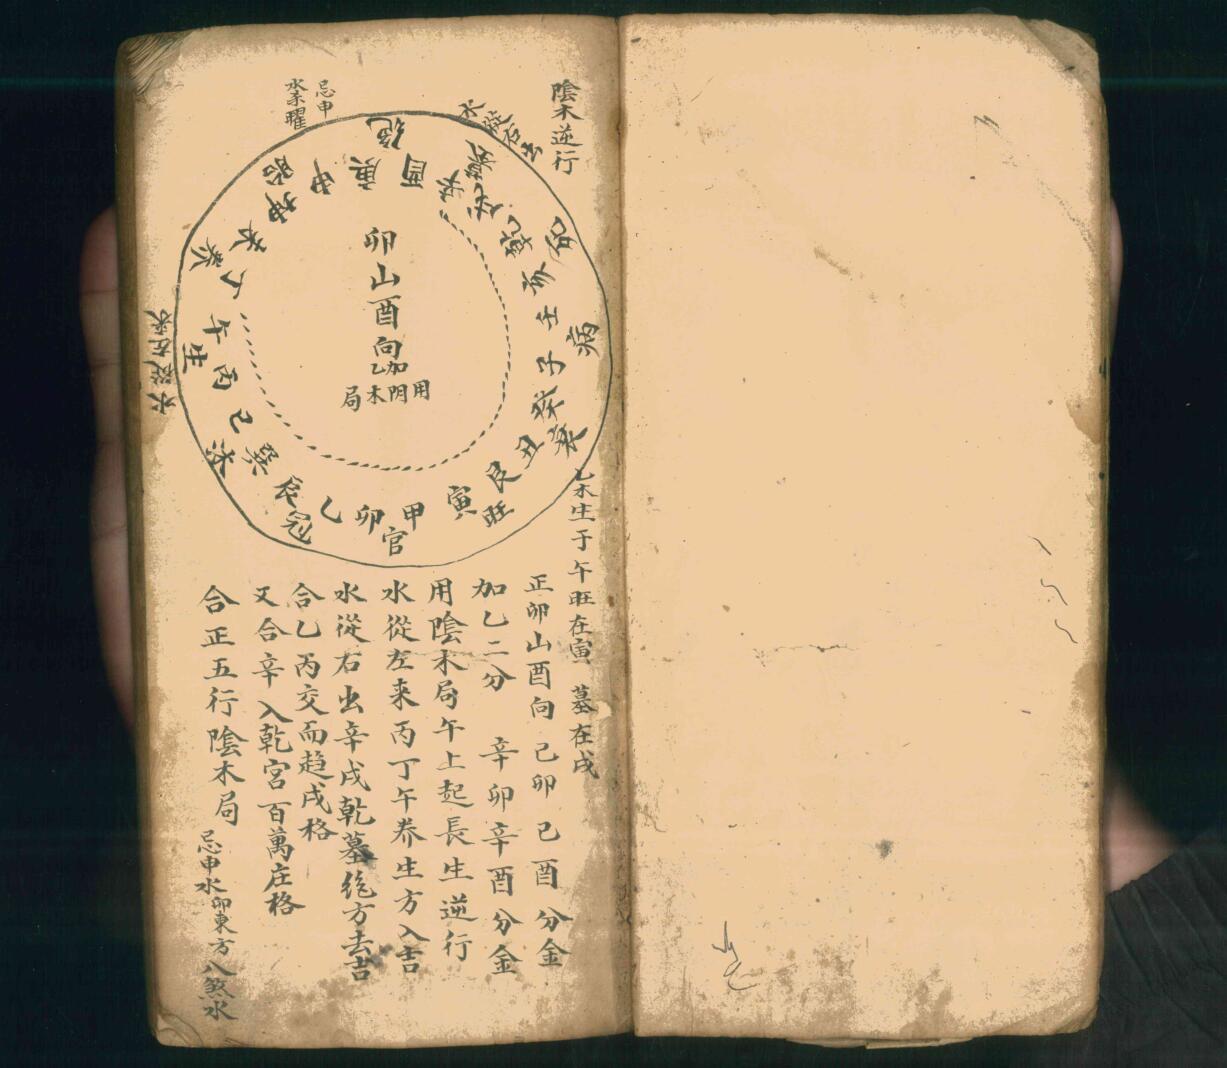 陰木逆行
水從右去
忌申
水來曜
水從左來
卯山酉向
加乙
用阴木局
絕
胎
養
生
沐
冠
官
旺
衰
病
死
墓
酉
庚
申
坤
未
丁
午
丙
巳
巽
辰
乙
卯
甲
寅
艮
丑
癸
子
壬
亥
乾
戌
辛
乙木生于午旺在寅 墓在戌
正卯山酉向 己卯己酉分金
加乙二分 辛卯辛酉分金
用陰木局午上起長生逆行
水從左来丙丁午养生方入吉
水從右出辛戌乾墓绝方去吉
合乙丙交而趋戌格
又合辛入乾宮百萬庄格
合正五行陰木局 忌申水卯東方八煞水